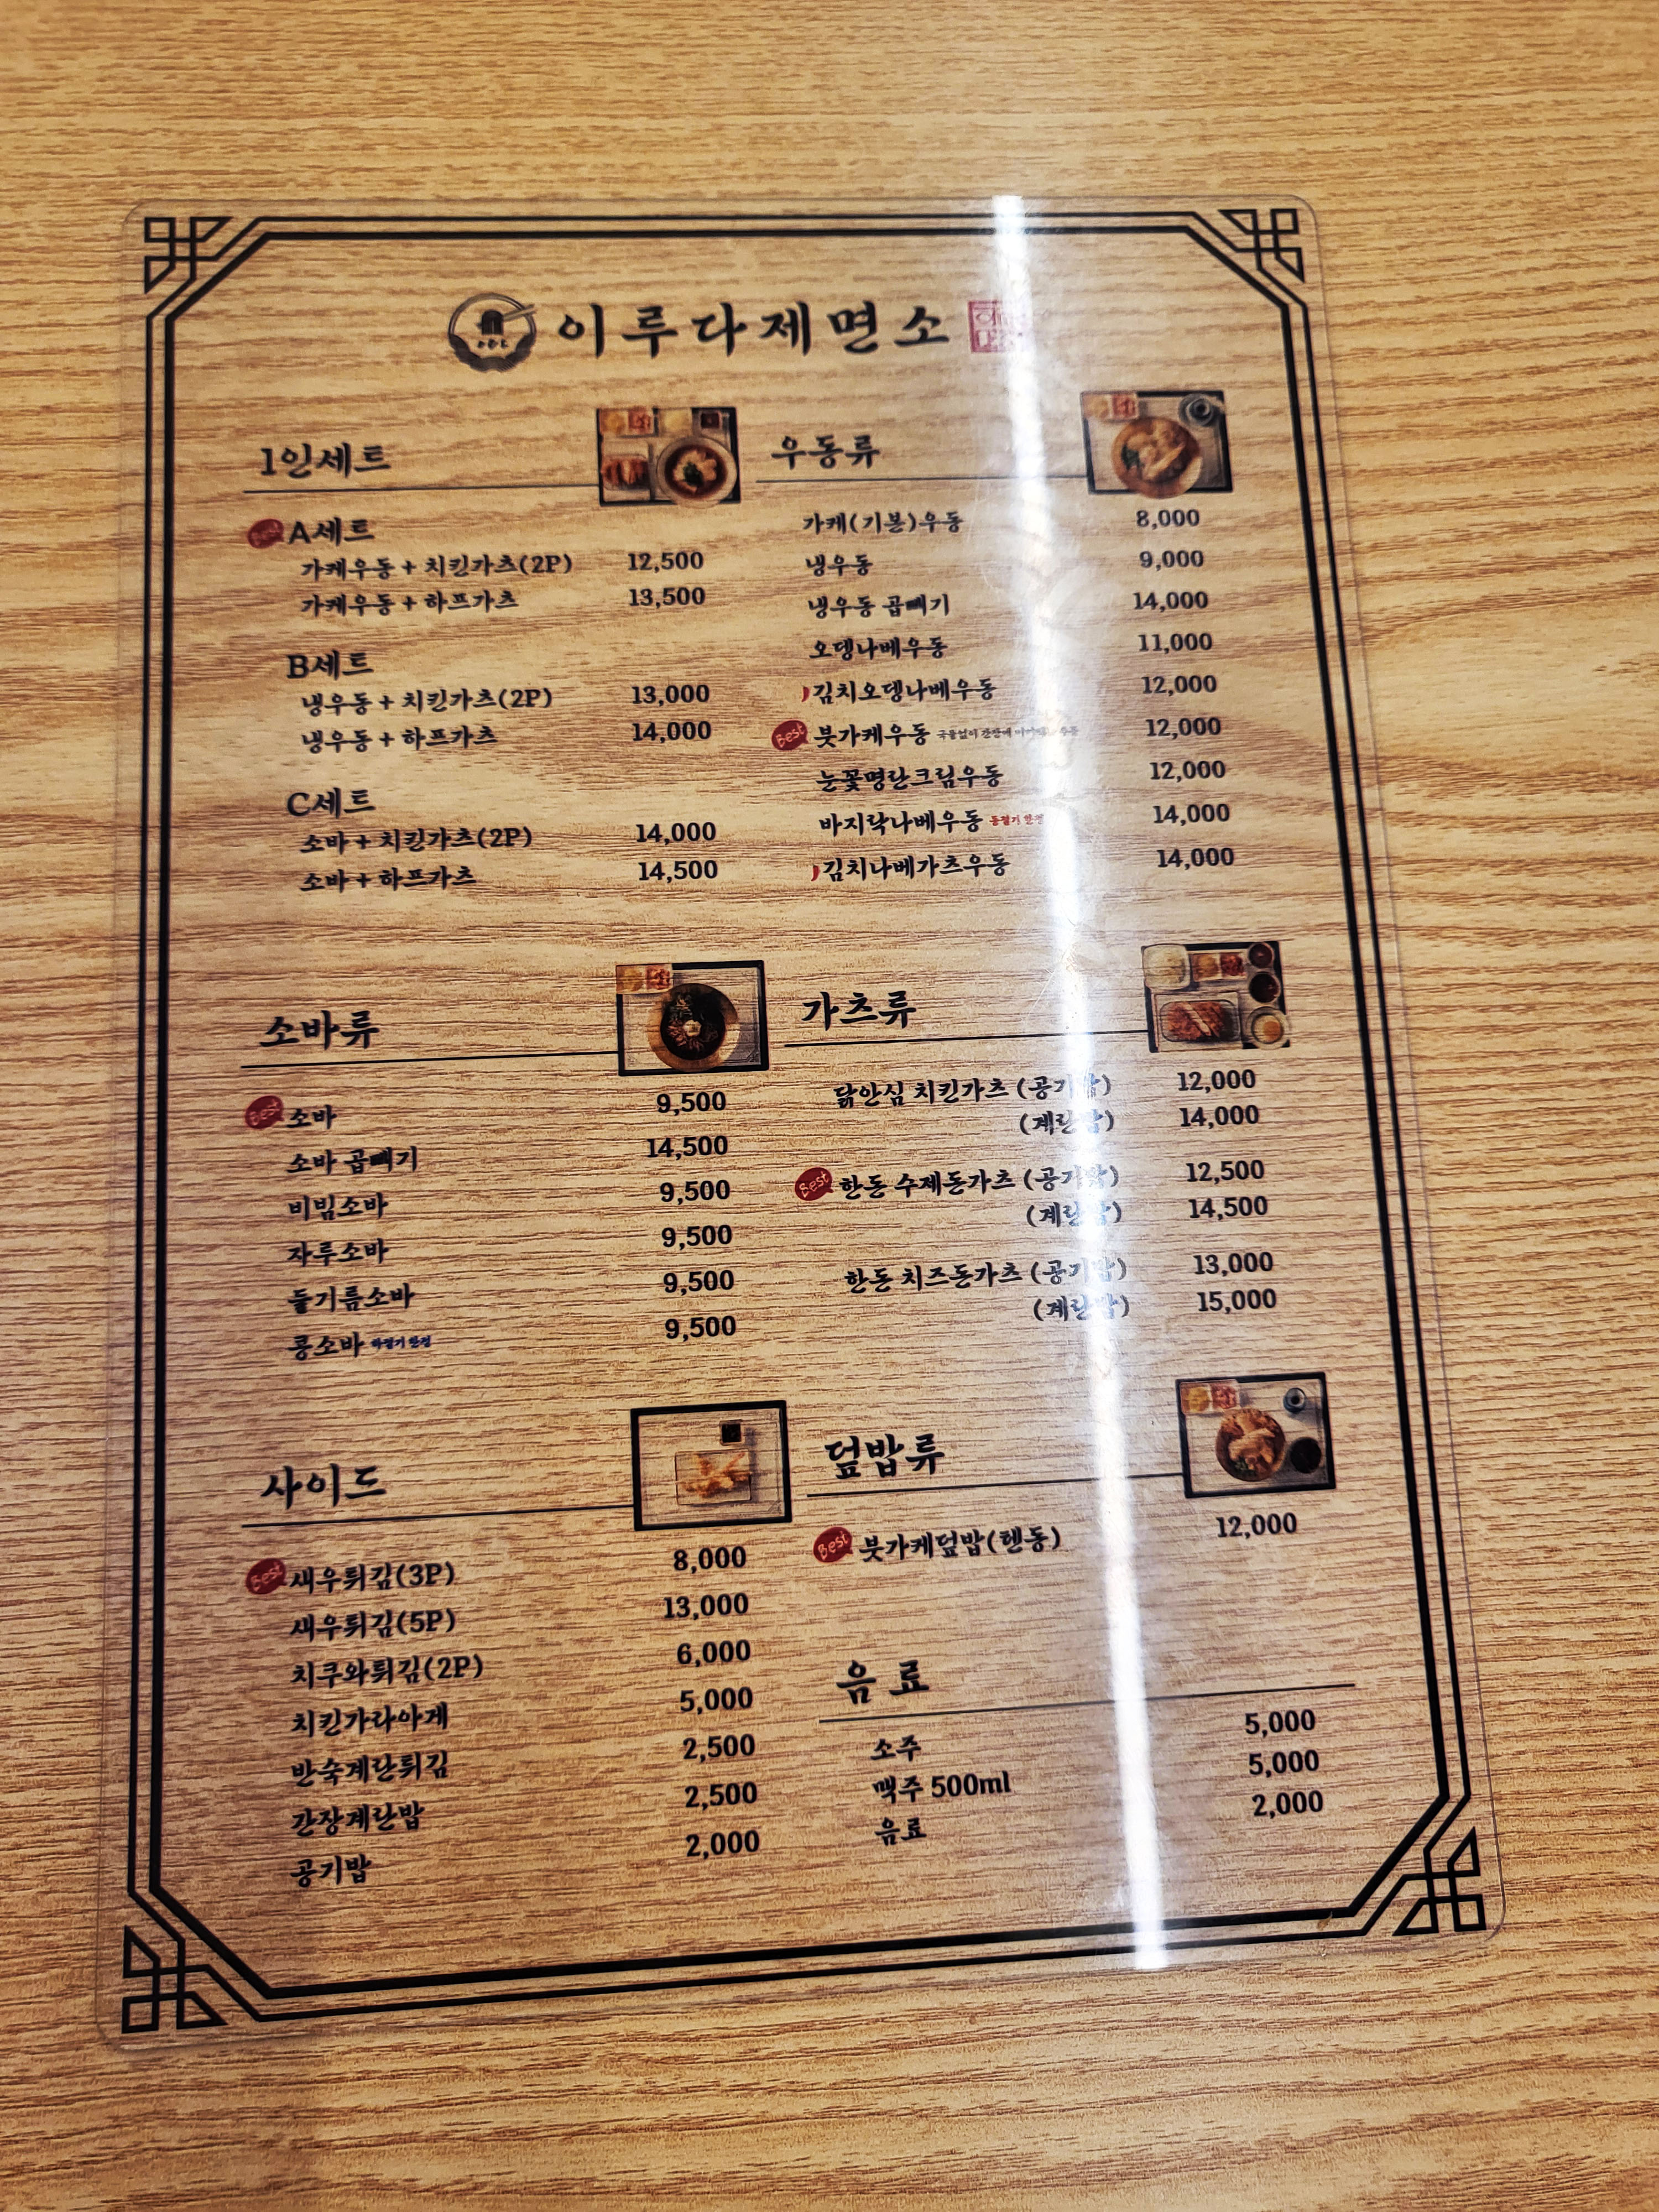 이루다제면소
1인세트
Best A세트
가케우동 + 치킨가츠(2P) 12,500
가케우동 + 하프가츠 13,500
B세트
냉우동 + 치킨가츠(2P) 13,000
냉우동 + 하프가츠 14,000
C세트
소바 + 치킨가츠(2P) 14,000
소바 + 하프가츠 14,500
우동류
가케(기본)우동 8,000
냉우동 9,000
냉우동 곱빼기 14,000
오뎅나베우동 11,000
김치오뎅나베우동 12,000
Best 붓가케우동 국물없이 간장에 12,000
눈꽃명란크림우동 12,000
바지락나베우동 동절기 한정 14,000
김치나베가츠우동 14,000
소바류
Best 소바 9,500
소바 곱빼기 14,500
비빔소바 9,500
자루소바 9,500
들기름소바 9,500
콩소바 하절기 한정 9,500
가츠류
닭안심 치킨가츠 (공기밥) 12,000
(계란밥) 14,000
Best 한돈 수제돈가츠 (공기밥) 12,500
(계란밥) 14,500
한돈 치즈돈가츠 (공기밥) 13,000
(계란밥) 15,000
사이드
Best 새우튀김(3P) 8,000
새우튀김(5P) 13,000
치쿠와튀김(2P) 6,000
치킨가라아게 5,000
반숙계란튀김 2,500
간장계란밥 2,500
공기밥 2,000
덮밥류
Best 붓가케덮밥(텐동) 12,000
음료
소주 5,000
맥주 500ml 5,000
음료 2,000